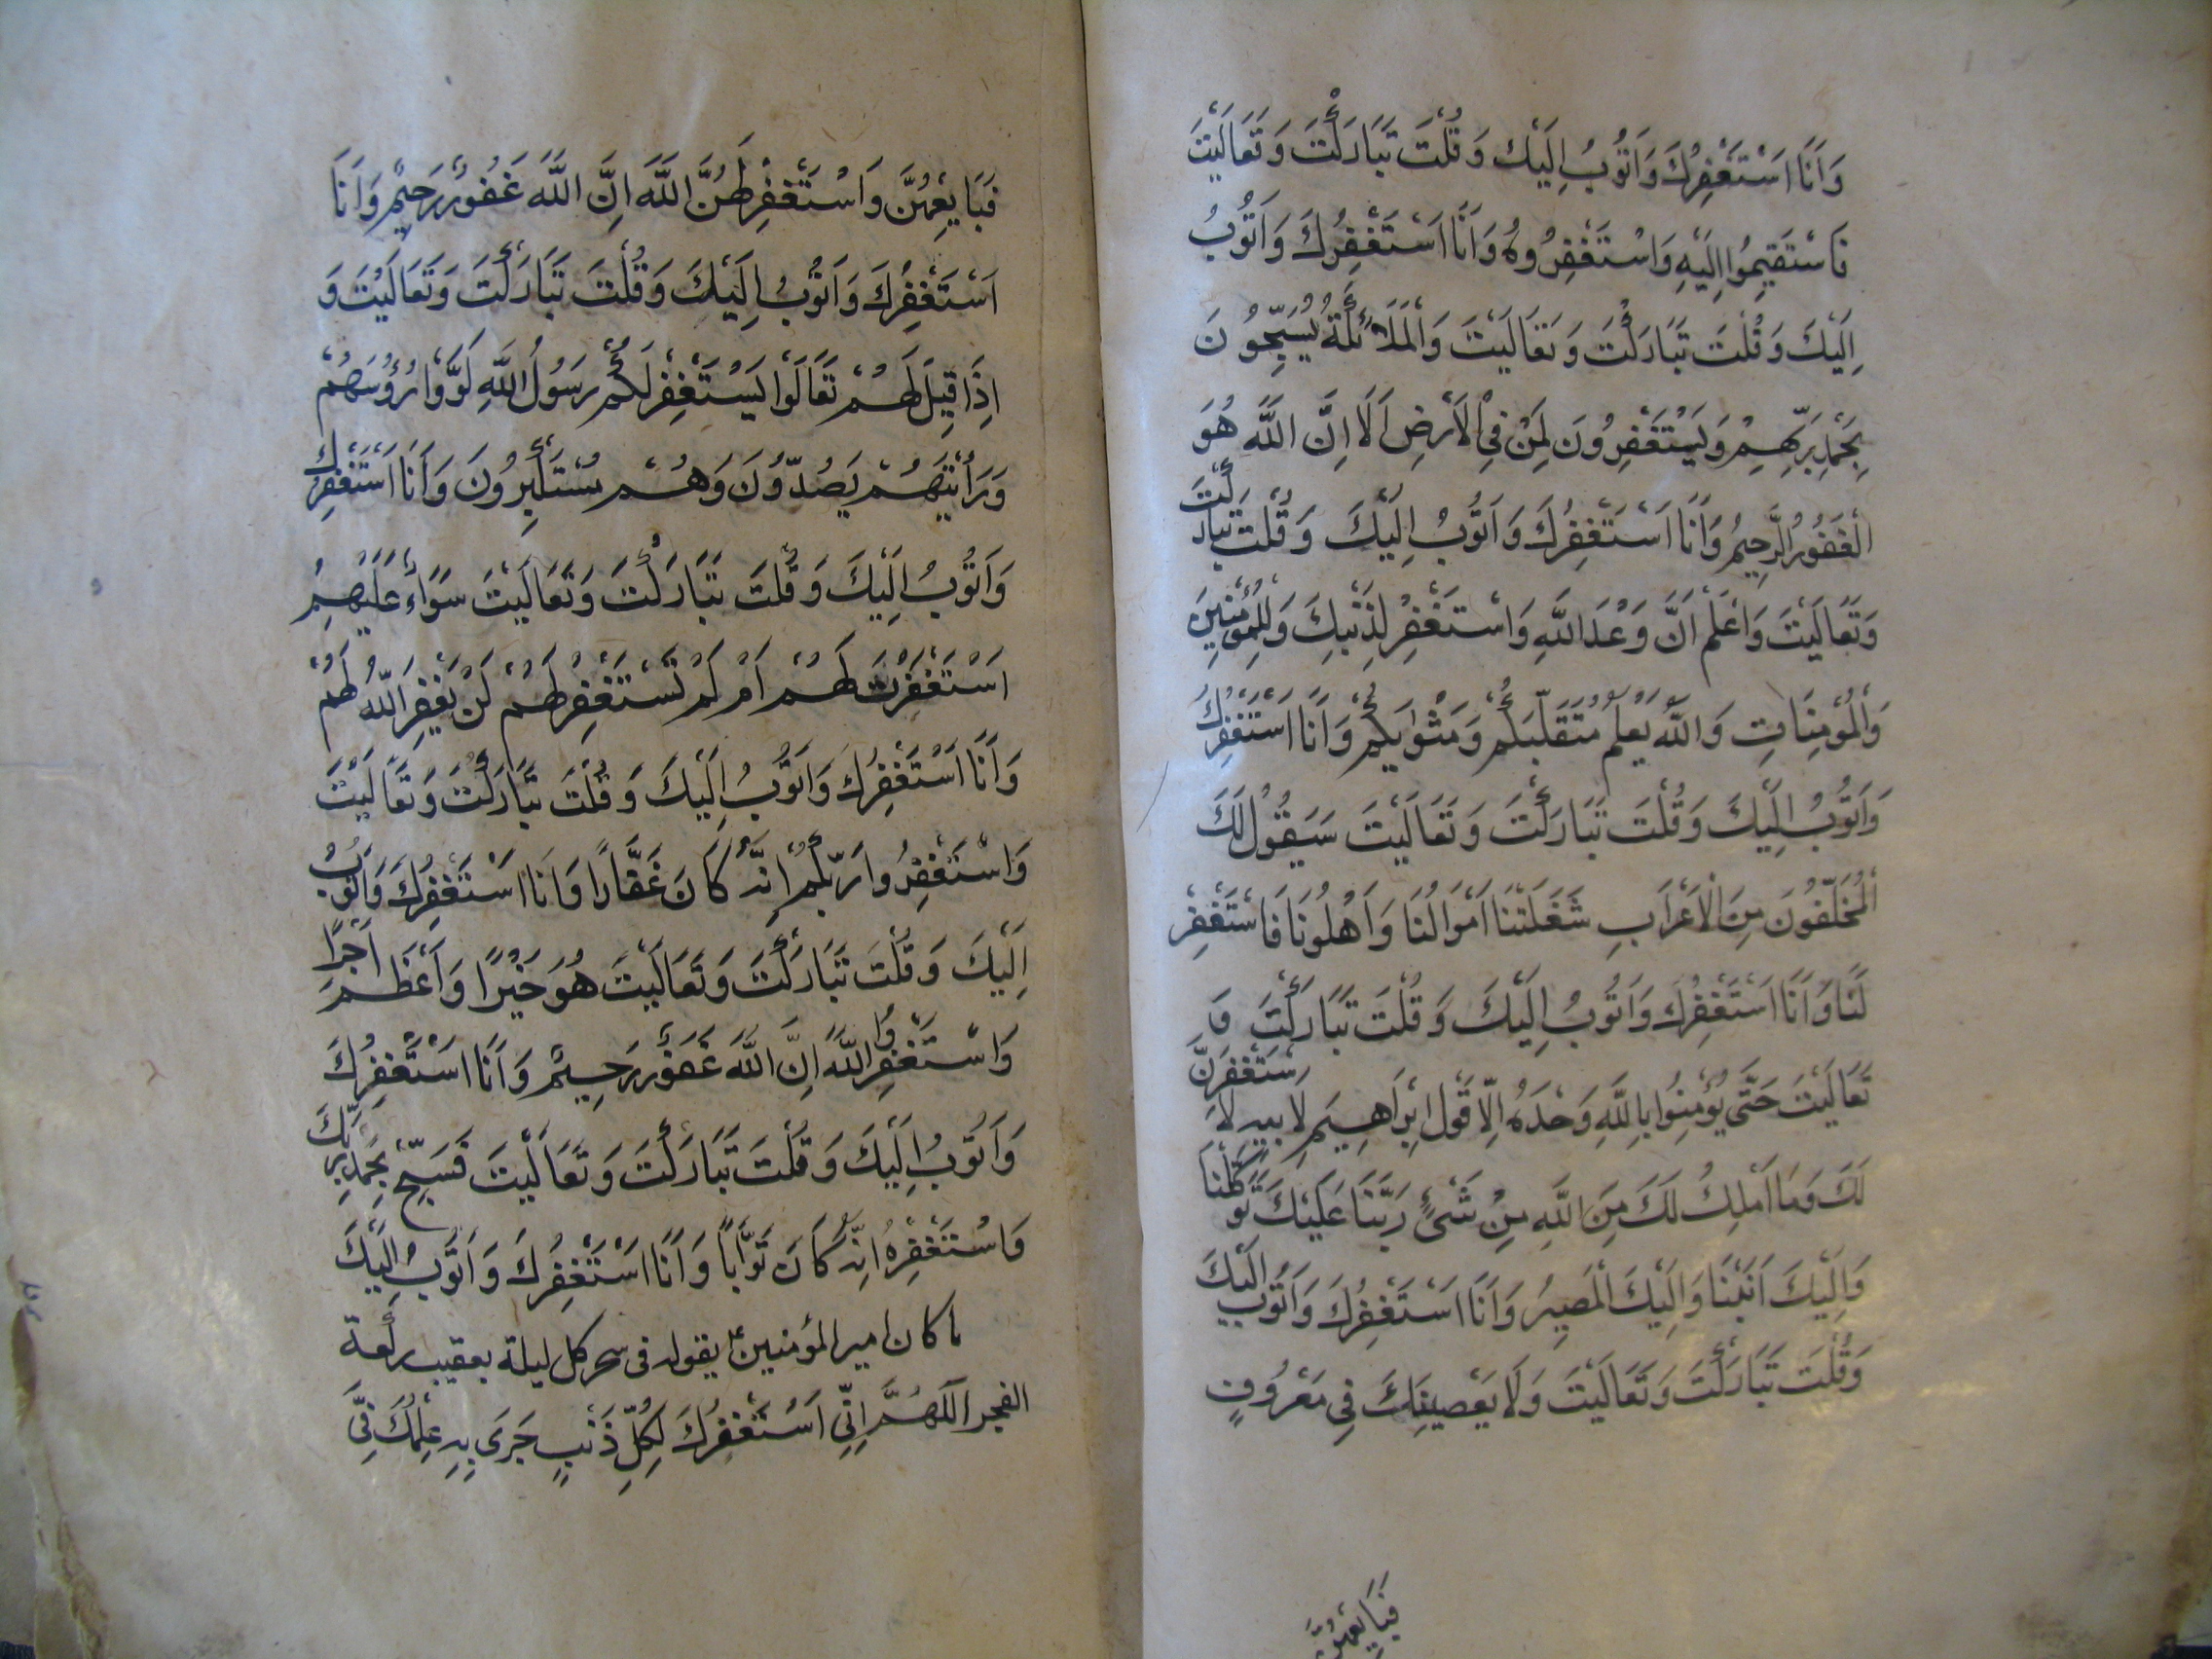 وَاَنَا اَسْتَغْفِرُكَ وَاَتُوبُ اِلَيْكَ وَقُلْتَ تَبَارَكْتَ وَتَعَالَيْتَ
فَاسْتَقِيمُوا اِلَيْهِ وَاسْتَغْفِرُوهُ وَاَنَا اَسْتَغْفِرُكَ وَاَتُوبُ
اِلَيْكَ وَقُلْتَ تَبَارَكْتَ وَتَعَالَيْتَ وَالْمَلَائِكَةُ يُسَبِّحُونَ
بِحَمْدِ رَبِّهِمْ وَيَسْتَغْفِرُونَ لِمَنْ فِي الْاَرْضِ اَلَا اِنَّ اللَّهَ هُوَ
الْغَفُورُ الرَّحِيمُ وَاَنَا اَسْتَغْفِرُكَ وَاَتُوبُ اِلَيْكَ وَقُلْتَ تَبَارَكْتَ
وَتَعَالَيْتَ وَاعْلَمْ اَنَّ وَعْدَ اللَّهِ وَاسْتَغْفِرْ لِذَنْبِكَ وَلِلْمُؤْمِنِينَ
وَالْمُؤْمِنَاتِ وَاللَّهُ يَعْلَمُ مُتَقَلَّبَكُمْ وَمَثْوٰيكُمْ وَاَنَا اَسْتَغْفِرُكَ
وَاَتُوبُ اِلَيْكَ وَقُلْتَ تَبَارَكْتَ وَتَعَالَيْتَ سَيَقُولُ لَكَ
الْمُخَلَّفُونَ مِنَ الْاَعْرَابِ شَغَلَتْنَا اَمْوَالُنَا وَاَهْلُونَا فَاسْتَغْفِرْ
لَنَا وَاَنَا اَسْتَغْفِرُكَ وَاَتُوبُ اِلَيْكَ وَقُلْتَ تَبَارَكْتَ وَ
تَعَالَيْتَ حَتَّى يُؤْمِنُوا بِاللَّهِ وَحْدَهُ اِلَّا قَوْلَ اِبْرَاهِيمَ لِاَبِيهِ لَاَسْتَغْفِرَنَّ
لَكَ وَمَا اَمْلِكُ لَكَ مِنَ اللَّهِ مِنْ شَيْءٍ رَبَّنَا عَلَيْكَ تَوَكَّلْنَا
وَاِلَيْكَ اَنَبْنَا وَاِلَيْكَ الْمَصِيرُ وَاَنَا اَسْتَغْفِرُكَ وَاَتُوبُ اِلَيْكَ
وَقُلْتَ تَبَارَكْتَ وَتَعَالَيْتَ وَلَا يَعْصِينَكَ فِي مَعْرُوفٍ
فَبَايِعْهُنَّ
فَبَايِعْهُنَّ وَاسْتَغْفِرْ لَهُنَّ اللَّهَ اِنَّ اللَّهَ غَفُورٌ رَحِيمٌ وَاَنَا
اَسْتَغْفِرُكَ وَاَتُوبُ اِلَيْكَ وَقُلْتَ تَبَارَكْتَ وَتَعَالَيْتَ وَ
اِذَا قِيلَ لَهُمْ تَعَالَوْا يَسْتَغْفِرْ لَكُمْ رَسُولُ اللَّهِ لَوَّوْا رُؤُسَهُمْ
وَرَاَيْتَهُمْ يَصُدُّونَ وَهُمْ مُسْتَكْبِرُونَ وَاَنَا اَسْتَغْفِرُكَ
وَاَتُوبُ اِلَيْكَ وَقُلْتَ تَبَارَكْتَ وَتَعَالَيْتَ سَوَاءٌ عَلَيْهِمْ
اَسْتَغْفَرْتَ لَهُمْ اَمْ لَمْ تَسْتَغْفِرْ لَهُمْ لَنْ يَغْفِرَ اللَّهُ لَهُمْ
وَاَنَا اَسْتَغْفِرُكَ وَاَتُوبُ اِلَيْكَ وَقُلْتَ تَبَارَكْتَ وَتَعَالَيْتَ
وَاسْتَغْفِرُوا رَبَّكُمْ اِنَّهُ كَانَ غَفَّارًا وَاَنَا اَسْتَغْفِرُكَ وَاَتُوبُ
اِلَيْكَ وَقُلْتَ تَبَارَكْتَ وَتَعَالَيْتَ هُوَ خَيْرًا وَاَعْظَمَ اَجْرًا
وَاسْتَغْفِرُوا اللَّهَ اِنَّ اللَّهَ غَفُورٌ رَحِيمٌ وَاَنَا اَسْتَغْفِرُكَ
وَاَتُوبُ اِلَيْكَ وَقُلْتَ تَبَارَكْتَ وَتَعَالَيْتَ فَسَبِّحْ بِحَمْدِ رَبِّكَ
وَاسْتَغْفِرْهُ اِنَّهُ كَانَ تَوَّابًا وَاَنَا اَسْتَغْفِرُكَ وَاَتُوبُ اِلَيْكَ
ما كان امير المؤمنين ع يقوله فى سحر كل ليلة بعقيب ركعة
الفجر اَللّٰهُمَّ اِنِّي اَسْتَغْفِرُكَ لِكُلِّ ذَنْبٍ جَرَى بِهِ عِلْمُكَ فِيَّ